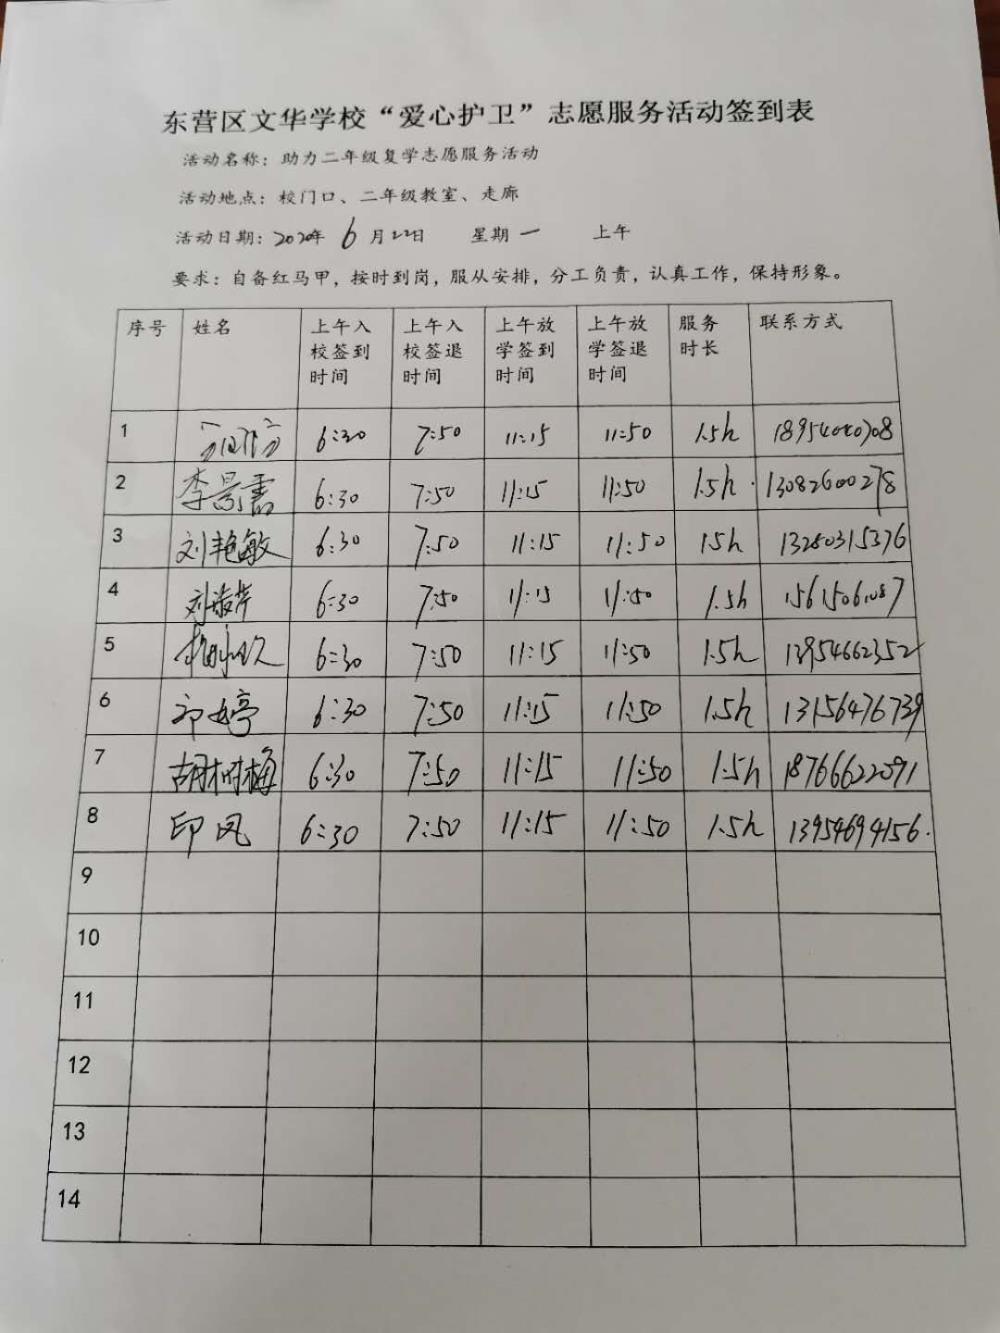 东营区文华学校“爱心护卫”志愿服务活动签到表
活动名称：助力二年级复学志愿服务活动
活动地点：校门口、二年级教室、走廊
活动日期：2020年 6 月22日 星期一 上午
要求：自备红马甲，按时到岗，服从安排，分工负责，认真工作，保持形象。
序号 姓名 上午入校签到时间 上午入校签退时间 上午放学签到时间 上午放学签退时间 服务时长 联系方式
1 6:30 7:50 11:15 11:50 1.5h 18954040708
2 李景霞 6:30 7:50 11:15 11:50 1.5h 13082600278
3 刘艳敏 6:30 7:50 11:15 11:50 1.5h 13280315376
4 刘淑芹 6:30 7:50 11:15 11:50 1.5h
5 6:30 7:50 11:15 11:50 1.5h 13954662352
6 邓婷 6:30 7:50 11:15 11:50 1.5h 13156476739
7 胡树梅 6:30 7:50 11:15 11:50 1.5h 18766622091
8 印凤 6:30 7:50 11:15 11:50 1.5h 13954694156.
9
10
11
12
13
14